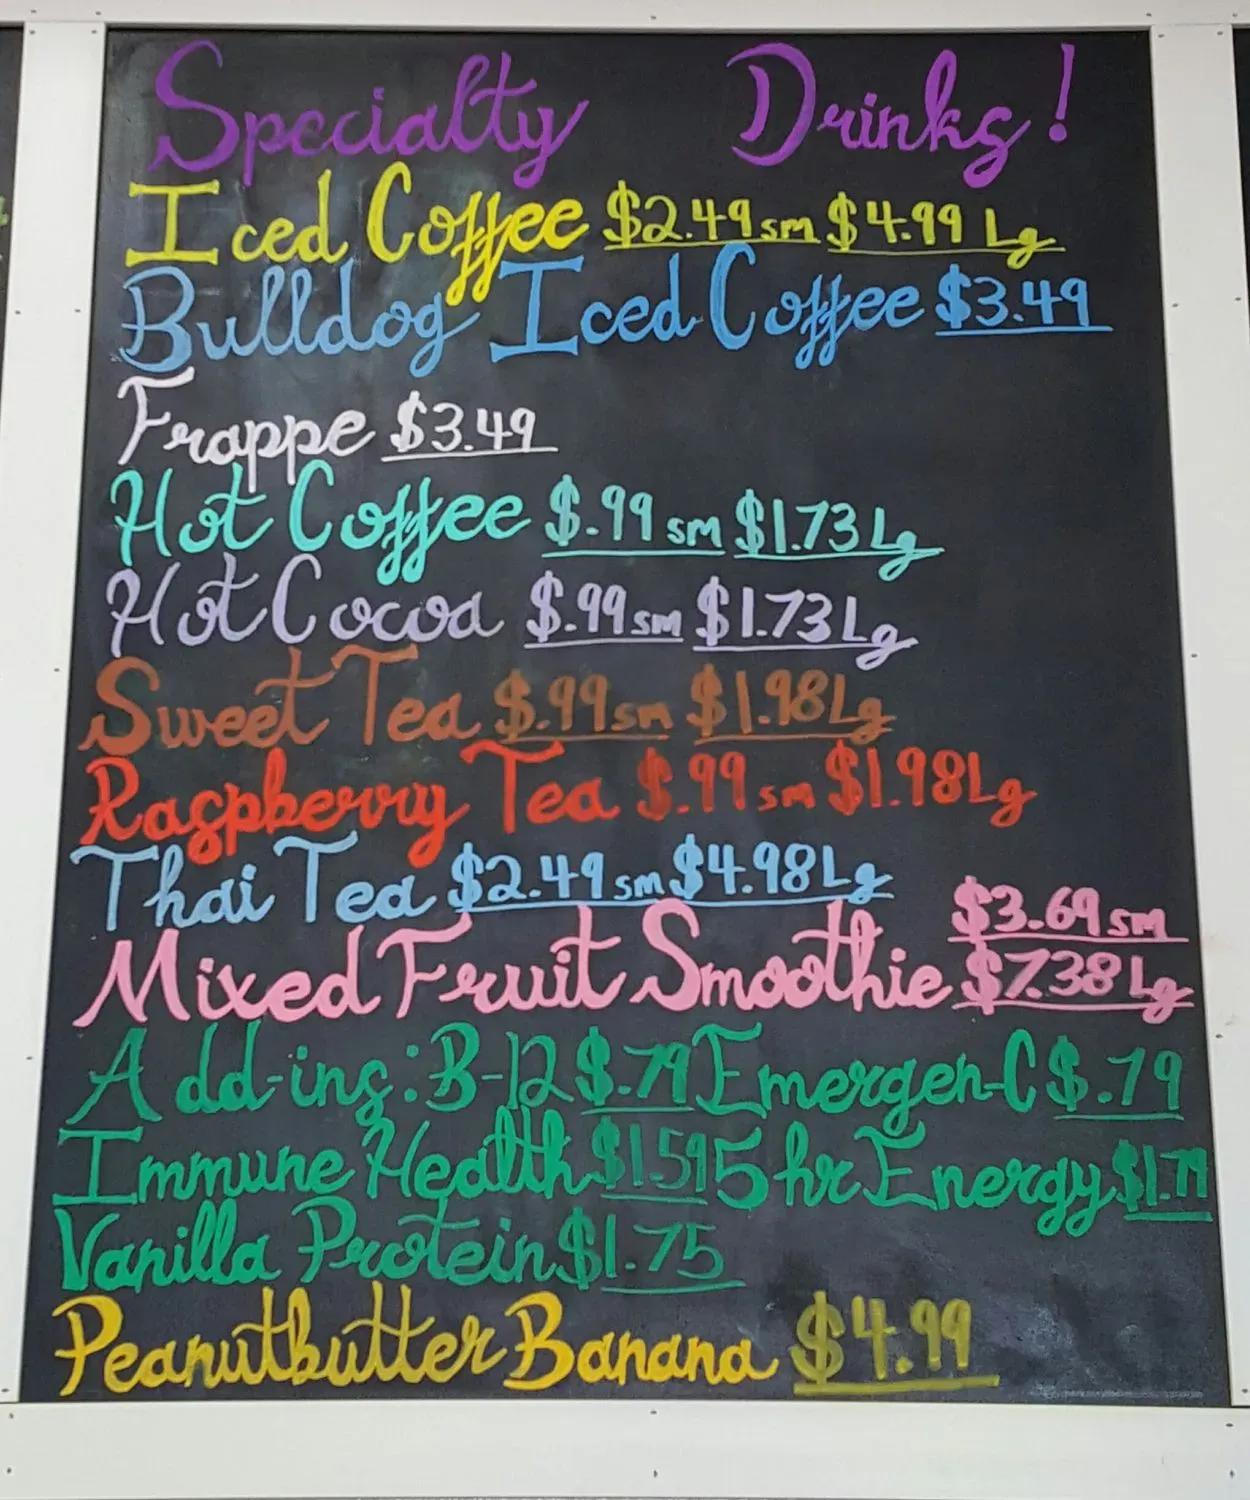 Specialty Drinks!
Iced Coffee $2.49 sm $4.99 Lg
Bulldog Iced Coffee $3.49
Frappe $3.49
Hot Coffee $.99 sm $1.73 Lg
Hot Cocoa $.99 sm $1.73 Lg
Sweet Tea $.99 sm $1.98 Lg
Raspberry Tea $.99 sm $1.98 Lg
Thai Tea $2.49 sm $4.98 Lg
Mixed Fruit Smoothie $3.69 sm
$7.38 Lg
Add-ins: B-12 $.79 Emergen-C $.79
Immune Health $1.59 5 hr Energy $1.79
Vanilla Protein $1.75
Peanutbutter Banana $4.99